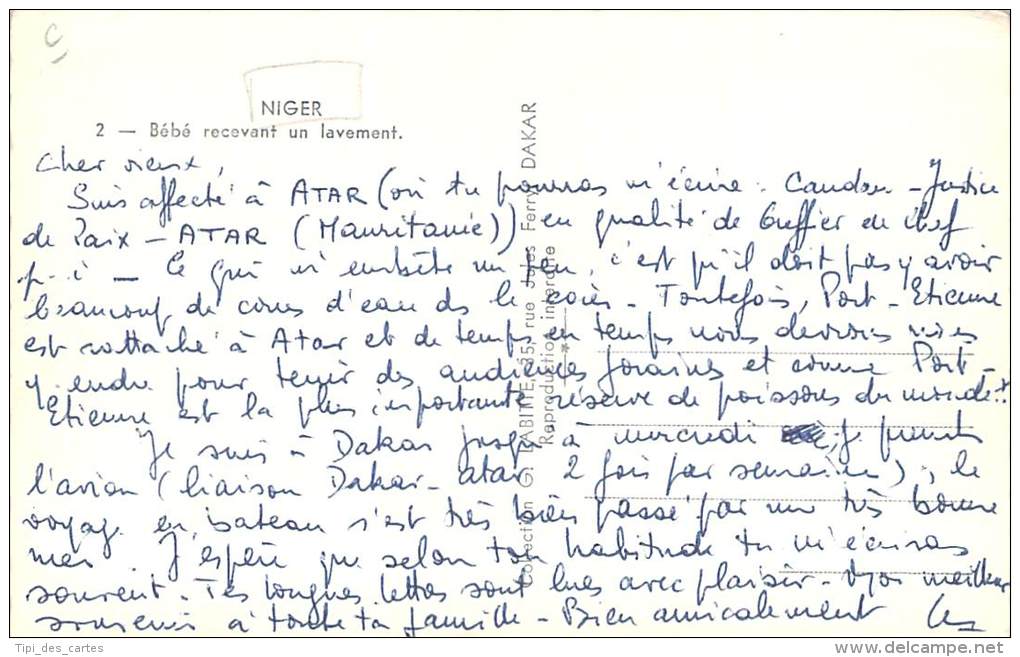 C
NIGER
2 — Bébé recevant un lavement.
Cher vieux,
Suis affecté à ATAR (où tu pourras m'écrire : - Justice
de Paix - ATAR (Mauritanie)) en qualité de Greffier en chef
p.i - Ce qui m'embête un peu, c'est qu'il doit pas y avoir
beaucoup de cours d'eau ds le coin - Toutefois, Port-Etienne
est rattaché à Atar et de temps en temps nous devrions
y rendre pour tenir des audiences foraines et comme Port-
Etienne est la plus importante réserve de poissons du monde !!
Je suis à Dakar jusqu'à mercredi je prends
l'avion (liaison Dakar-Atar 2 fois par semaine), le
voyage en bateau s'est très bien passé par une très bonne
mer. J'espère que selon ton habitude tu m'écriras
souvent. Tes longues lettres sont lues avec plaisir - Mon meilleur
souvenir à toute ta famille - Bien amicalement
Collection G. LABITTE, 35, rue Jules Ferry, DAKAR
Reproduction interdite
Tipi_des_cartes
delcampe.net